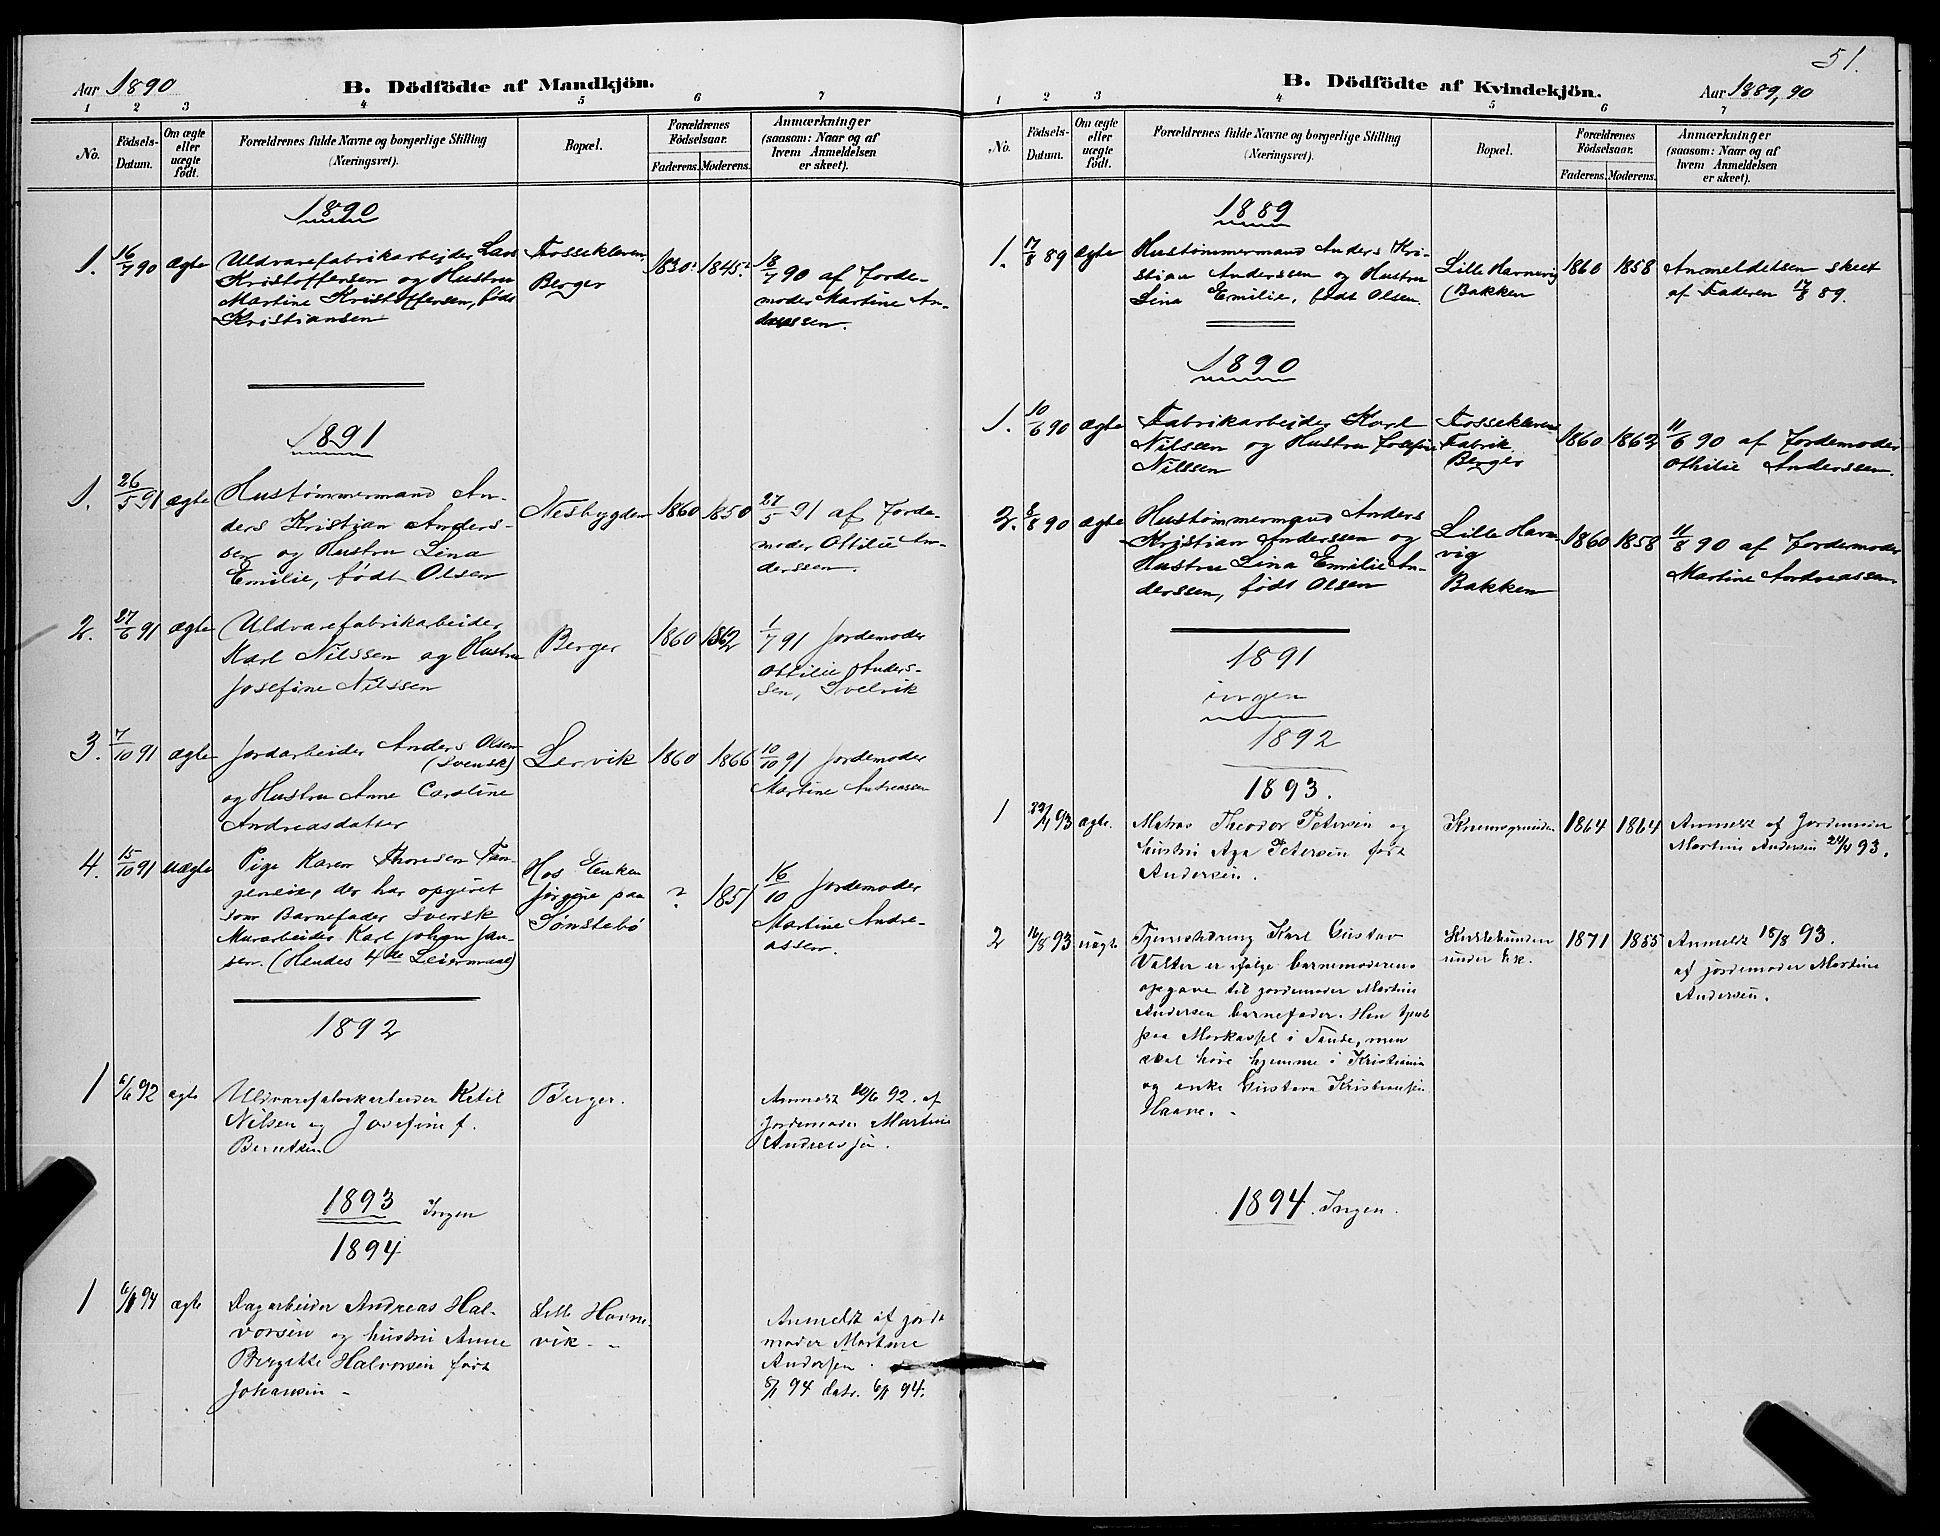 Aar 1890
B. Dödfödte af Mandkjön.
1 2 3 4 5 6 7
No.
Födsels-
Datum.
Om ægte
eller
uægte
födt.
Forældrenes fulde Navne og borgerlige Stilling
(Næringsvei).
Bopæl.
Forældrenes
Födselsaar.
Faderens. Moderens.
Anmærkninger
(saasom: Naar og af
hvem Anmeldelsen
er skeet).
1890
1. 16/7 90 ægte
Uldvarefabrikarbejder Lars
Kristoffersen og Hustru
Martine Kristoffersen, født
Kristiansen
Fossekleven
Berger
1830? 1845?
18/7 90 af Jorde-
moder Martine An-
dreassen.
1891
1. 26/5 91 ægte
Hustømmermand An-
ders Kristian Anders-
sen og Hustru Lina
Emilie, født Olsen
Nesbygden
1860 1850
27/5 91 af Jorde-
moder Ottilie An-
derssen.
2. 27/6 91 ægte
Uldvarefabrikarbeider
Karl Nilssen og Hustru
Josefine Nilssen
Berger
1860 1862
1/7 91 Jordemoder
Ottilie Anders-
sen, Svelvik
3. 7/10 91 ægte
Jordarbeider Anders Olsen
(Svensk)
og Hustru Anne Caroline
Andreasdatter
Lervik
1860 1866
10/10 91 Jordemoder
Martine Andreassen
4. 15/10 91 uægte
Pige Karen Thoresen Tan-
geneie, der har opgivet
som Barnefader svensk
Murarbeider Karl Johan Jan-
sen. (Hendes 4de Leiermaal)
Hos Enken
Jørgine paa
Tømstebø
? 1851
16/10 Jordemoder
Martine Andre-
assen.
1892
1 6/6 92 ægte
Uldvarefabrikarbeider Ketil
Nilsen og Josefine f.
Berntsen
Berger.
Anmeldt 10/6 92. af
Jordemoder Martine
Andreassen.
1893 Ingen
1894
1 6/1 94 ægte
Dagarbeider Andreas Hal-
vorsen og hustru Anne
Birgitte Halvorsen født
Johansen -
Lille Havne-
vik. -
Anmeldt af jorde
moder Martine
Andersen.
8/1 94 datr. 6/1 94.
51.
B. Dödfödte af Kvindekjön.
Aar 1889, 90
1 2 3 4 5 6 7
No.
Födsels-
Datum.
Om ægte
eller
uægte
födt.
Forældrenes fulde Navne og borgerlige Stilling
(Næringsvei).
Bopæl.
Forældrenes
Födselsaar.
Faderens. Moderens.
Anmærkninger
(saasom: Naar og af
hvem Anmeldelsen
er skeet).
1889
1. 17/8 89 ægte
Hustømmermand Anders Kri-
stian Anderssen og Hustru
Lina Emilie, født Olsen.
Lille Havnevig
Bakken
1860 1858
Anmeldelsen skeet
af Faderen 17/8 89.
1890
1. 10/6 90 ægte
Fabrikarbejder Karl
Nilssen og Hustru Josefine
Nilssen
Fosseklevens
Fabrik
Berger
1860 1862
11/6 90 af Jordemoder
Othilie Anderssen.
2. 8/8 90 ægte
Hustømmermand Anders
Kristian Anderssen og
Hustru Lina Emilie An-
derssen, født Olsen
Lille Havne
vig
Bakken
1860 1858
11/8 90 af Jordemoder
Martine Andreassen
1891
ingen
1892
1893.
1 /4 93 ægte.
Matros Theodor Petersen og
hustru Petersen født
Andersen.
1864 1864
Anmeldt af Jordemoder
Martine Andersen 24/4 93.
2 16/8 93 uægte
Tjenestedreng Karl Gustav
er ifølge barnemoderens
opgave til jordemoder Martine
Andersen barnefader. Han
paa i Sande, men
skal høre hjemme i Kristiania
og enke Gustava Kristiansen
Haave. -
under
1871 1855
Anmeldt 18/8 93.
af jordemoder Martine
Andersen.
1894. Ingen.